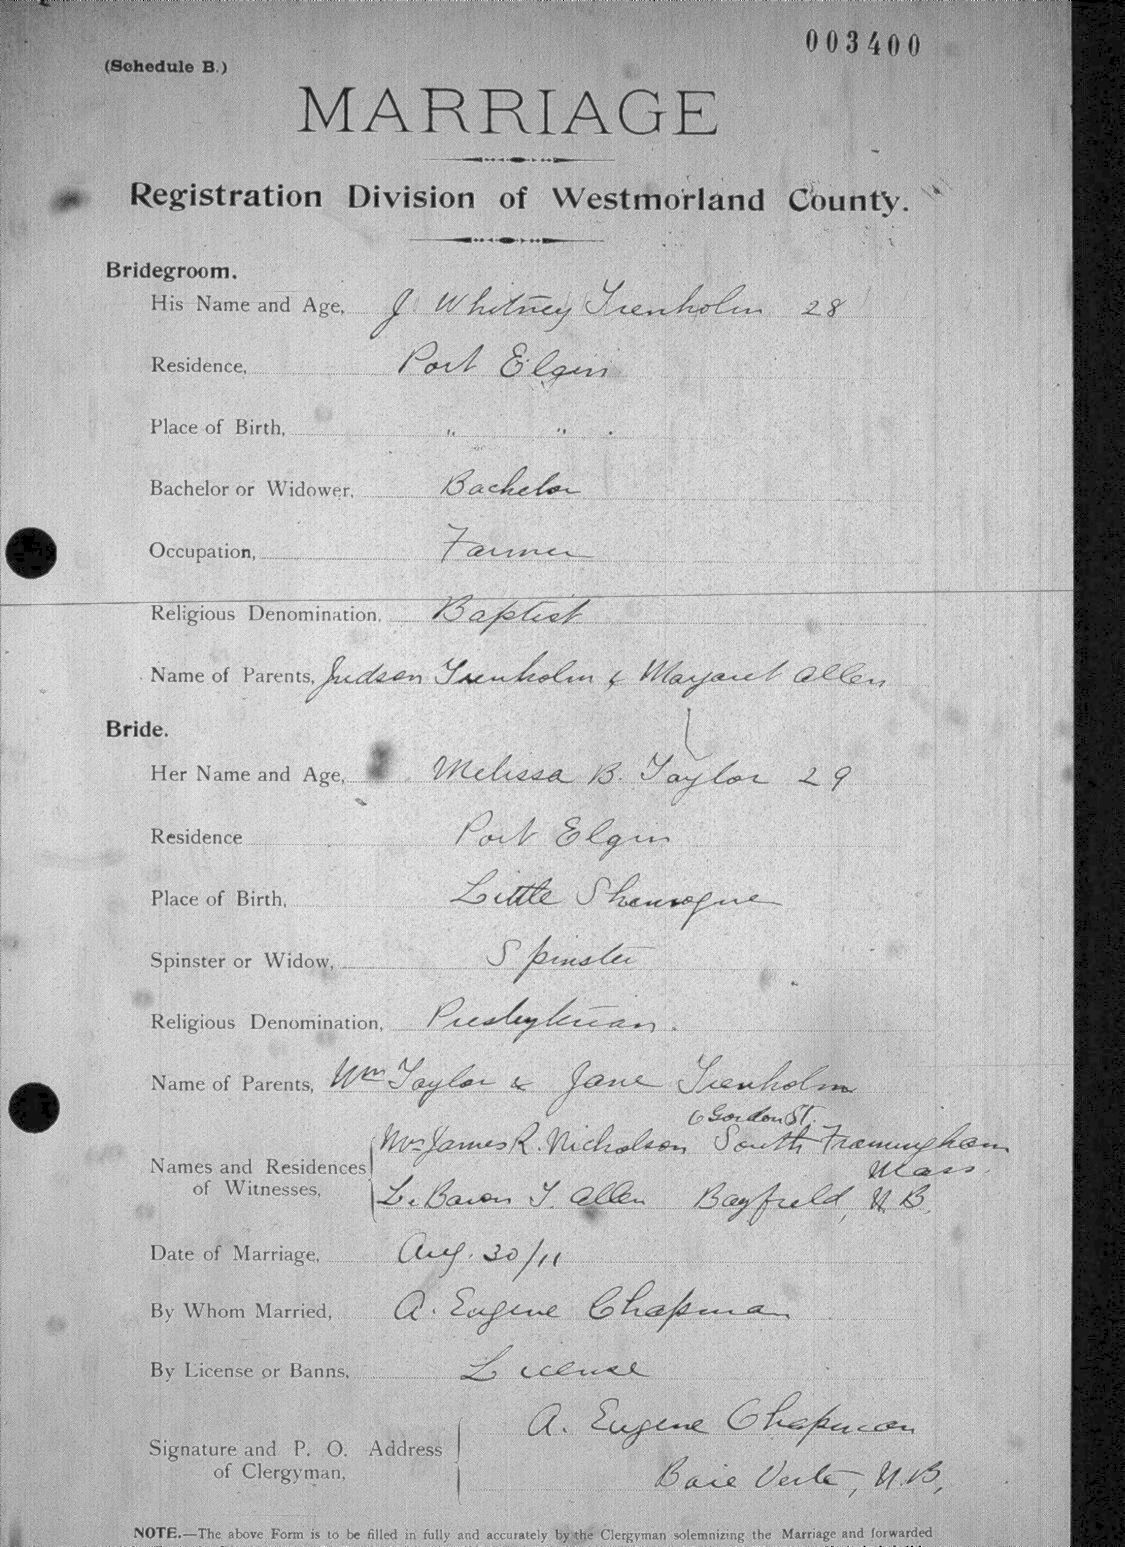 003400
(Schedule B.)
MARRIAGE
Registration Division of Westmorland County.
Bridegroom.
His Name and Age, J Whitney Trenholm 28
Residence, Port Elgin
Place of Birth, " "
Bachelor or Widower, Bachelor
Occupation, Farmer
Religious Denomination, Baptist
Name of Parents, Judson Trenholm & Margaret Allen
Bride.
Her Name and Age, Melissa B. Taylor 29
Residence Port Elgin
Place of Birth, Little Shemogue
Spinster or Widow, Spinster
Religious Denomination, Presbyterian.
Name of Parents, Wm Taylor & Jane Trenholm
6 Gordon St.
Mrs James R. Nicholson South Framingham
Names and Residences Mass.
of Witnesses, LeBaron T. Allen Bayfield, N.B.
Date of Marriage, Aug. 30/11
By Whom Married, A. Eugene Chapman
By License or Banns, License
A. Eugene Chapman
Signature and P. O. Address
of Clergyman, Baie Verte, N.B.
NOTE.—The above Form is to be filled in fully and accurately by the Clergyman solemnizing the Marriage and forwarded